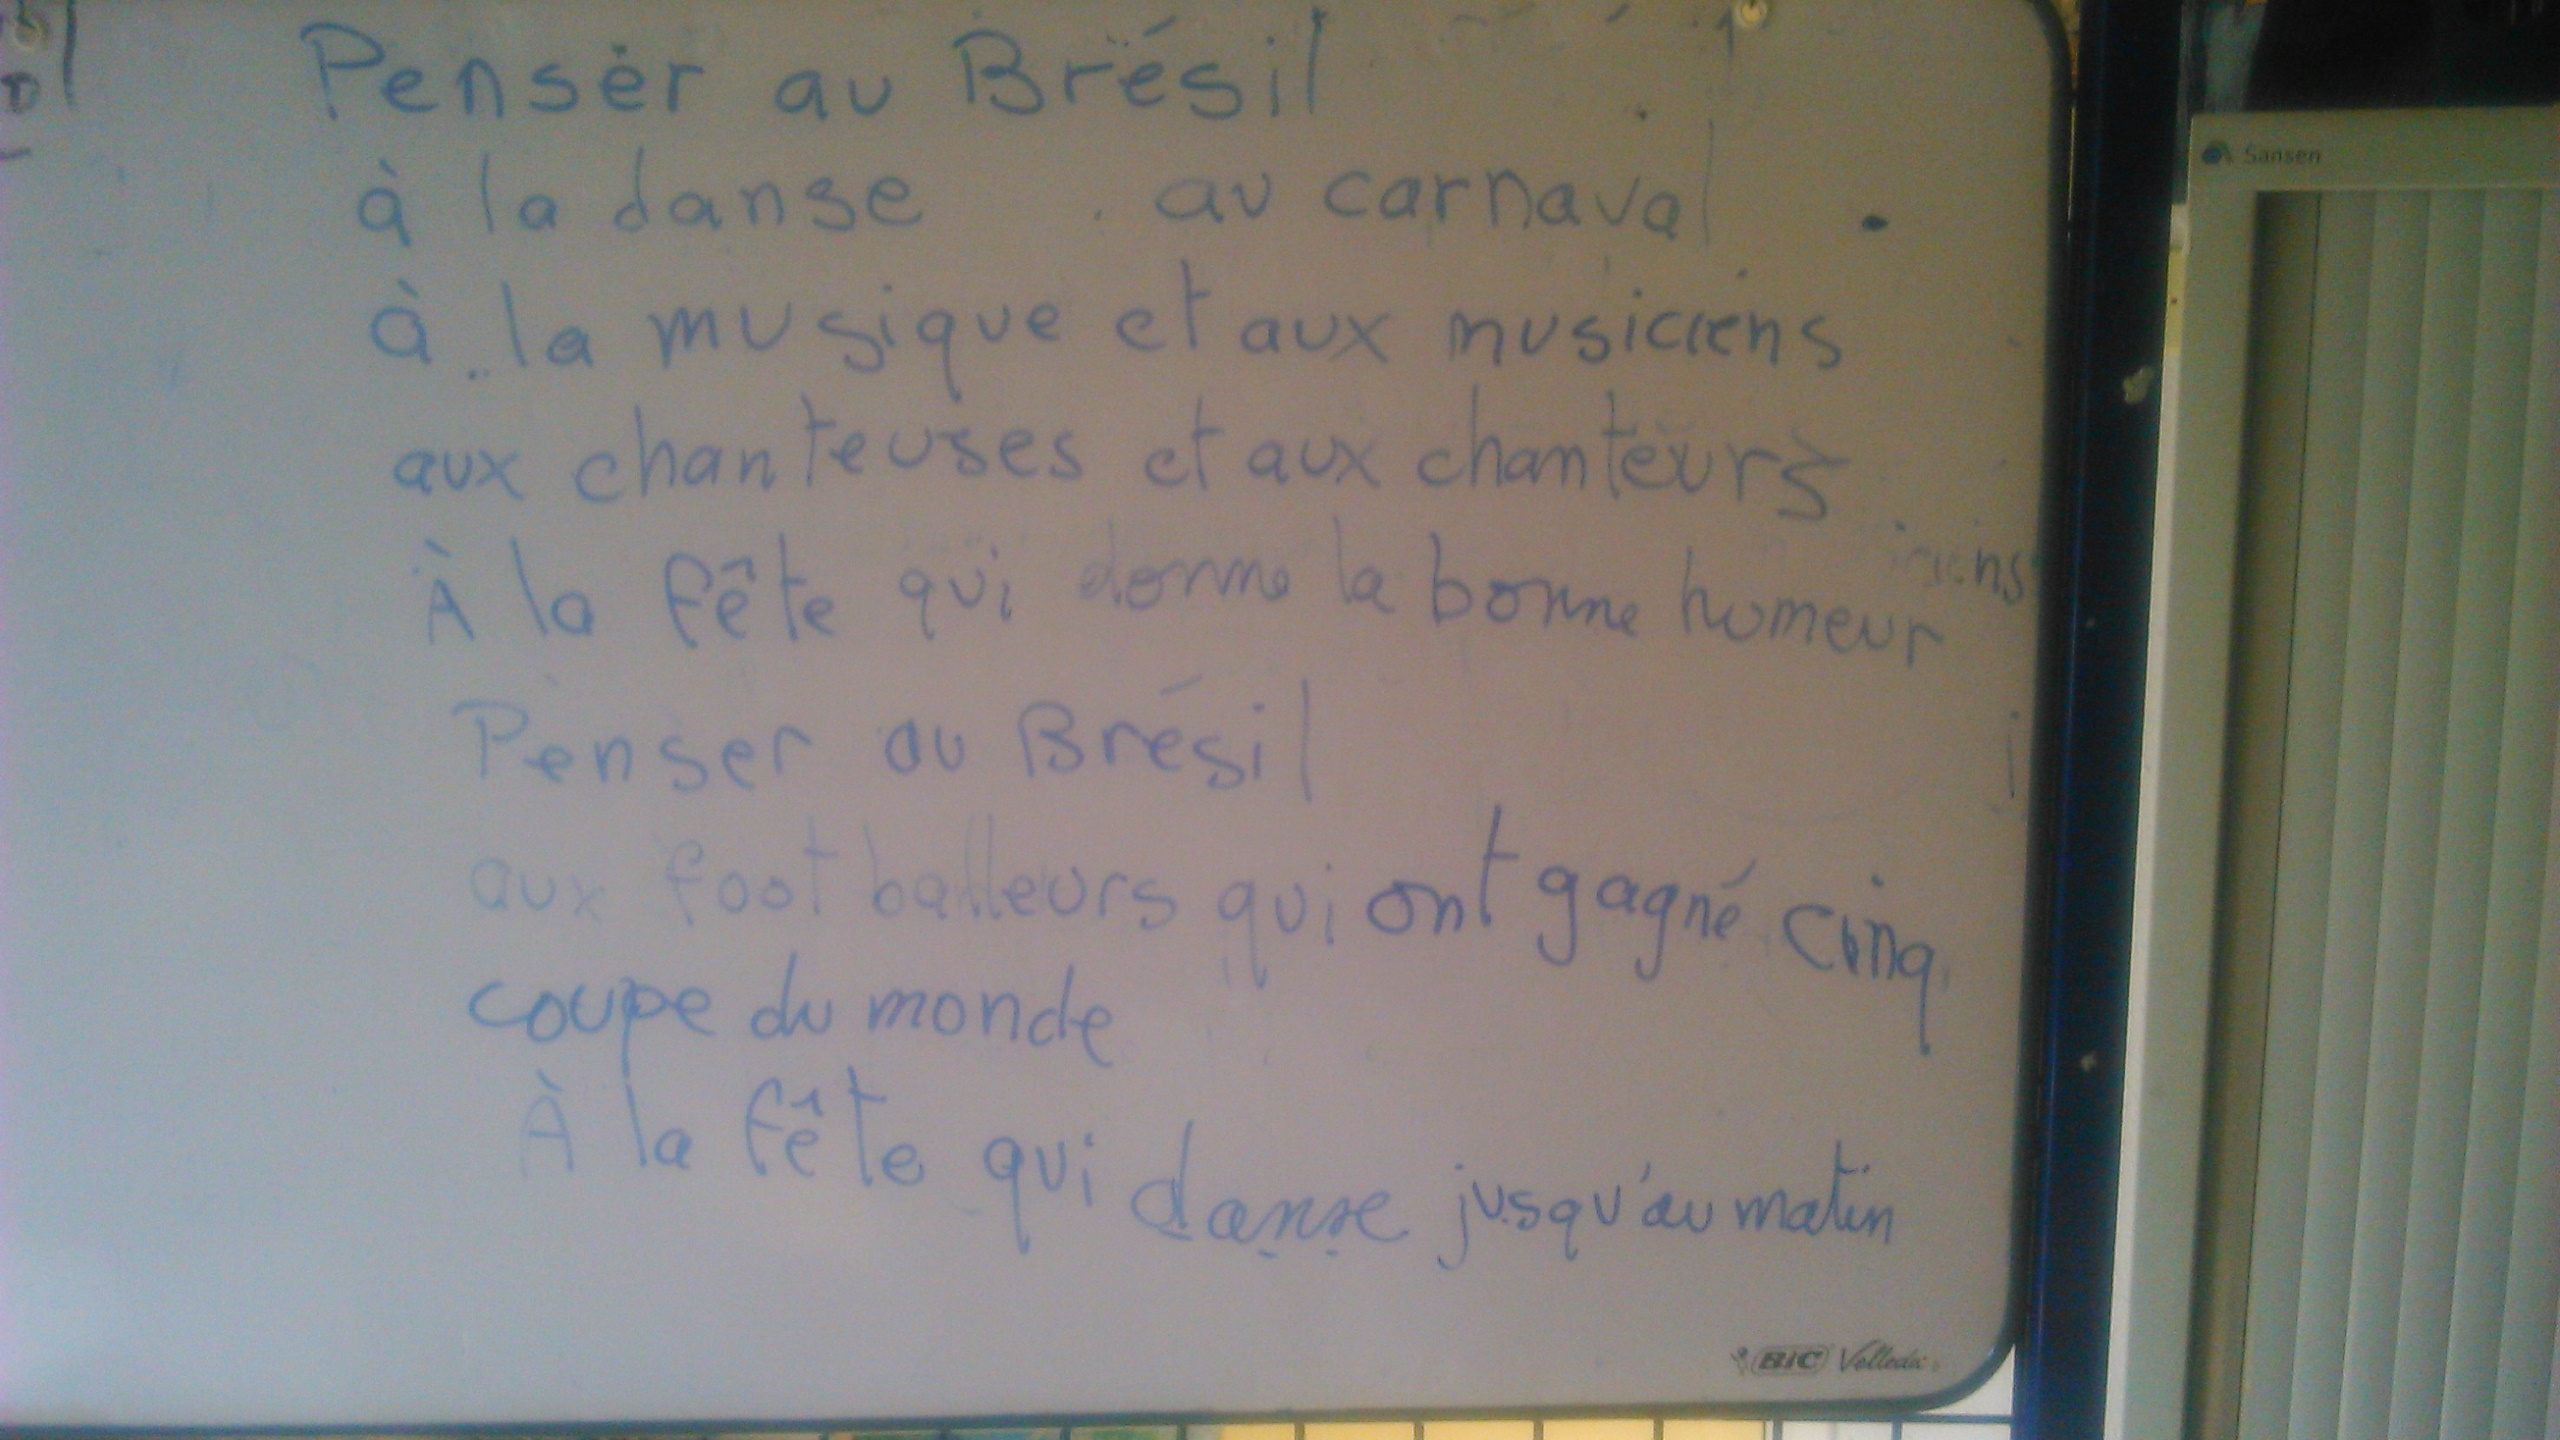 Penser au Brésil
à la danse au carnaval
à la musique et aux musiciens
aux chanteuses et aux chanteurs
À la fête qui donne la bonne humeur
Penser au Brésil
aux footballeurs qui ont gagné cinq
coupe du monde
À la fête qui danse jusqu'au matin
BIC Velleda
Sansen